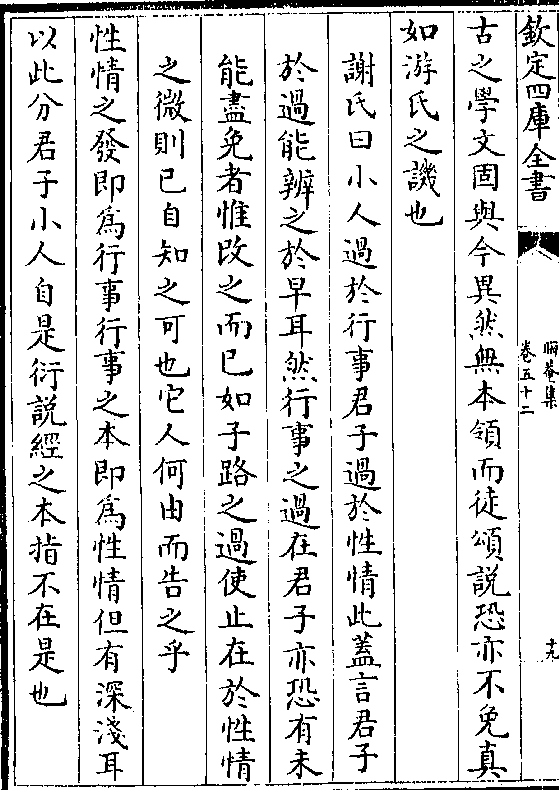 欽定四庫全書
晦菴集
卷五十二
十九
古之學文固與今異然無本領而徒頌說恐亦不免真
如游氏之譏也
謝氏曰小人過於行事君子過於性情此蓋言君子
於過能辨之於早耳然行事之過在君子亦恐有未
能盡免者惟改之而已如子路之過使止在於性情
之微則已自知之可也它人何由而告之乎
性情之發即為行事行事之本即為性情但有深淺耳
以此分君子小人自是衍說經之本指不在是也